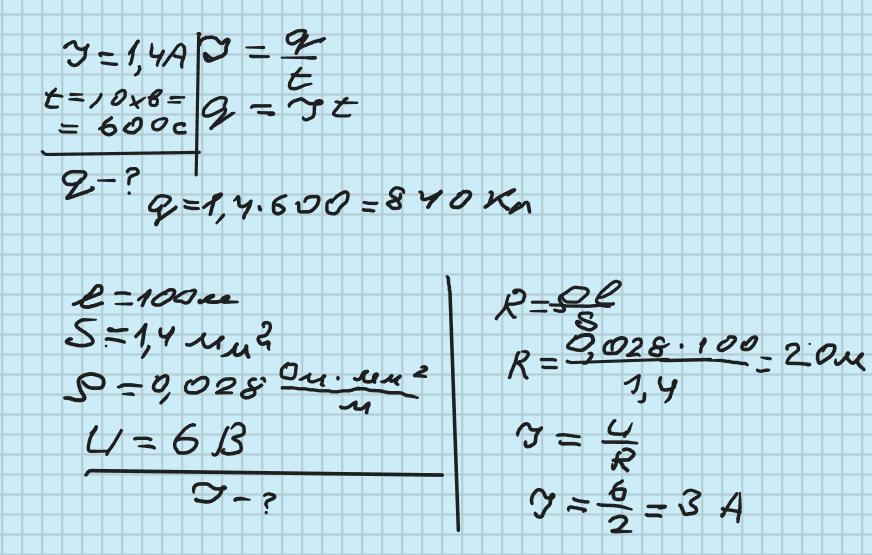 I = 1,4 А
I = q/t
t = 10 хв =
= 600 с
q = I t
q - ?
q = 1,4 · 600 = 840 Кл
l = 100 м
S = 1,4 мм²
ρ = 0,028 Ом · мм²/м
U = 6 В
I - ?
R = ρl/S
R = 0,028 · 100/1,4 = 2 Ом
I = U/R
I = 6/2 = 3 А